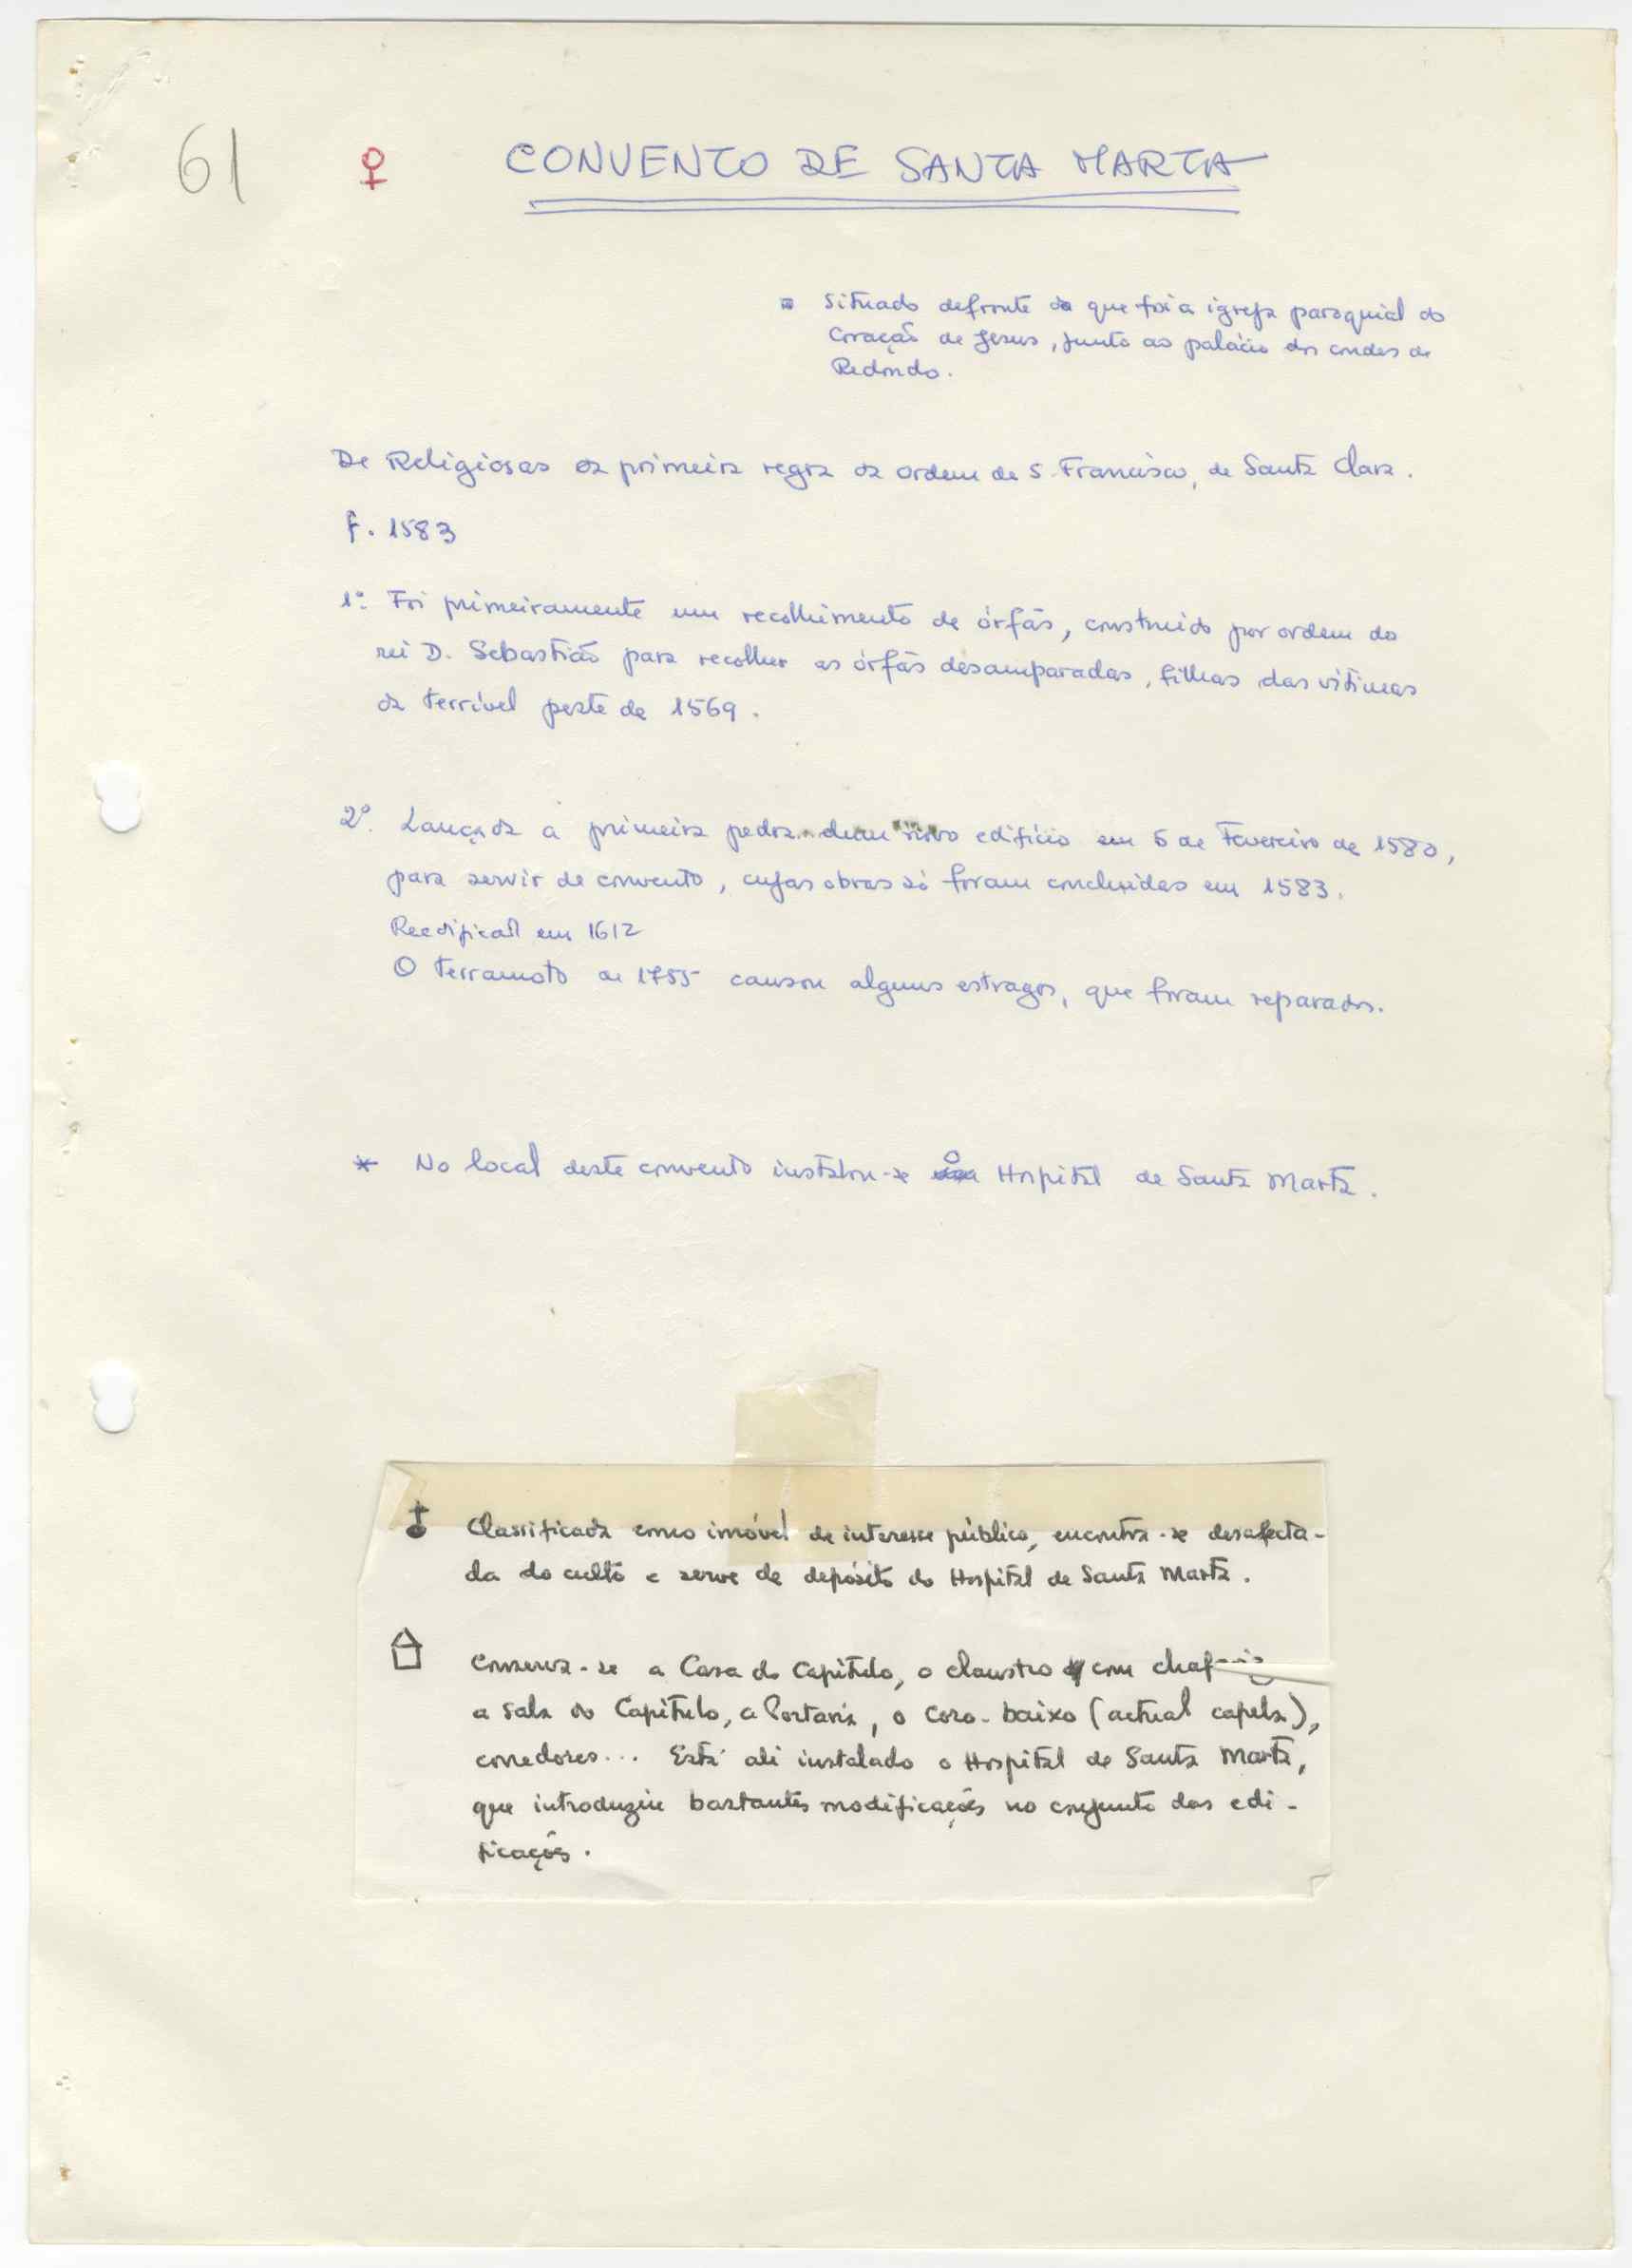 61 ♀ CONVENTO DE SANTA MARTA
Situado defronte da que foi a igreja paroquial do
Coração de Jesus, junto ao palácio dos condes de
Redondo.
De Religiosas da primeira regra da ordem de S. Francisco, de Santa Clara.
f. 1583
1º. Foi primeiramente um recolhimento de órfãs, construido por ordem do
rei D. Sebastião para recolher as órfãs desamparadas, filhas das vitimas
da terrível peste de 1569.
2º. Lançada a primeira pedra dum novo edifício em 5 de Fevereiro de 1580,
para servir de convento, cujas obras só foram concluidas em 1583.
em 1612
O terramoto de 1755 causou alguns estragos, que foram reparados.
* No local deste convento instalou-se o Hospital de Santa Marta.
Classificada como imóvel de interesse público, encontra-se desafecta-
da do culto e serve de depósito do Hospital de Santa Marta.
Conserva-se a Casa do Capítulo, o claustro com
a Sala do Capítulo, a Portaria, o coro-baixo (actual capela),
corredores... Está ali instalado o Hospital de Santa Marta,
que introduziu bastantes modificações no conjunto das edi-
ficações.